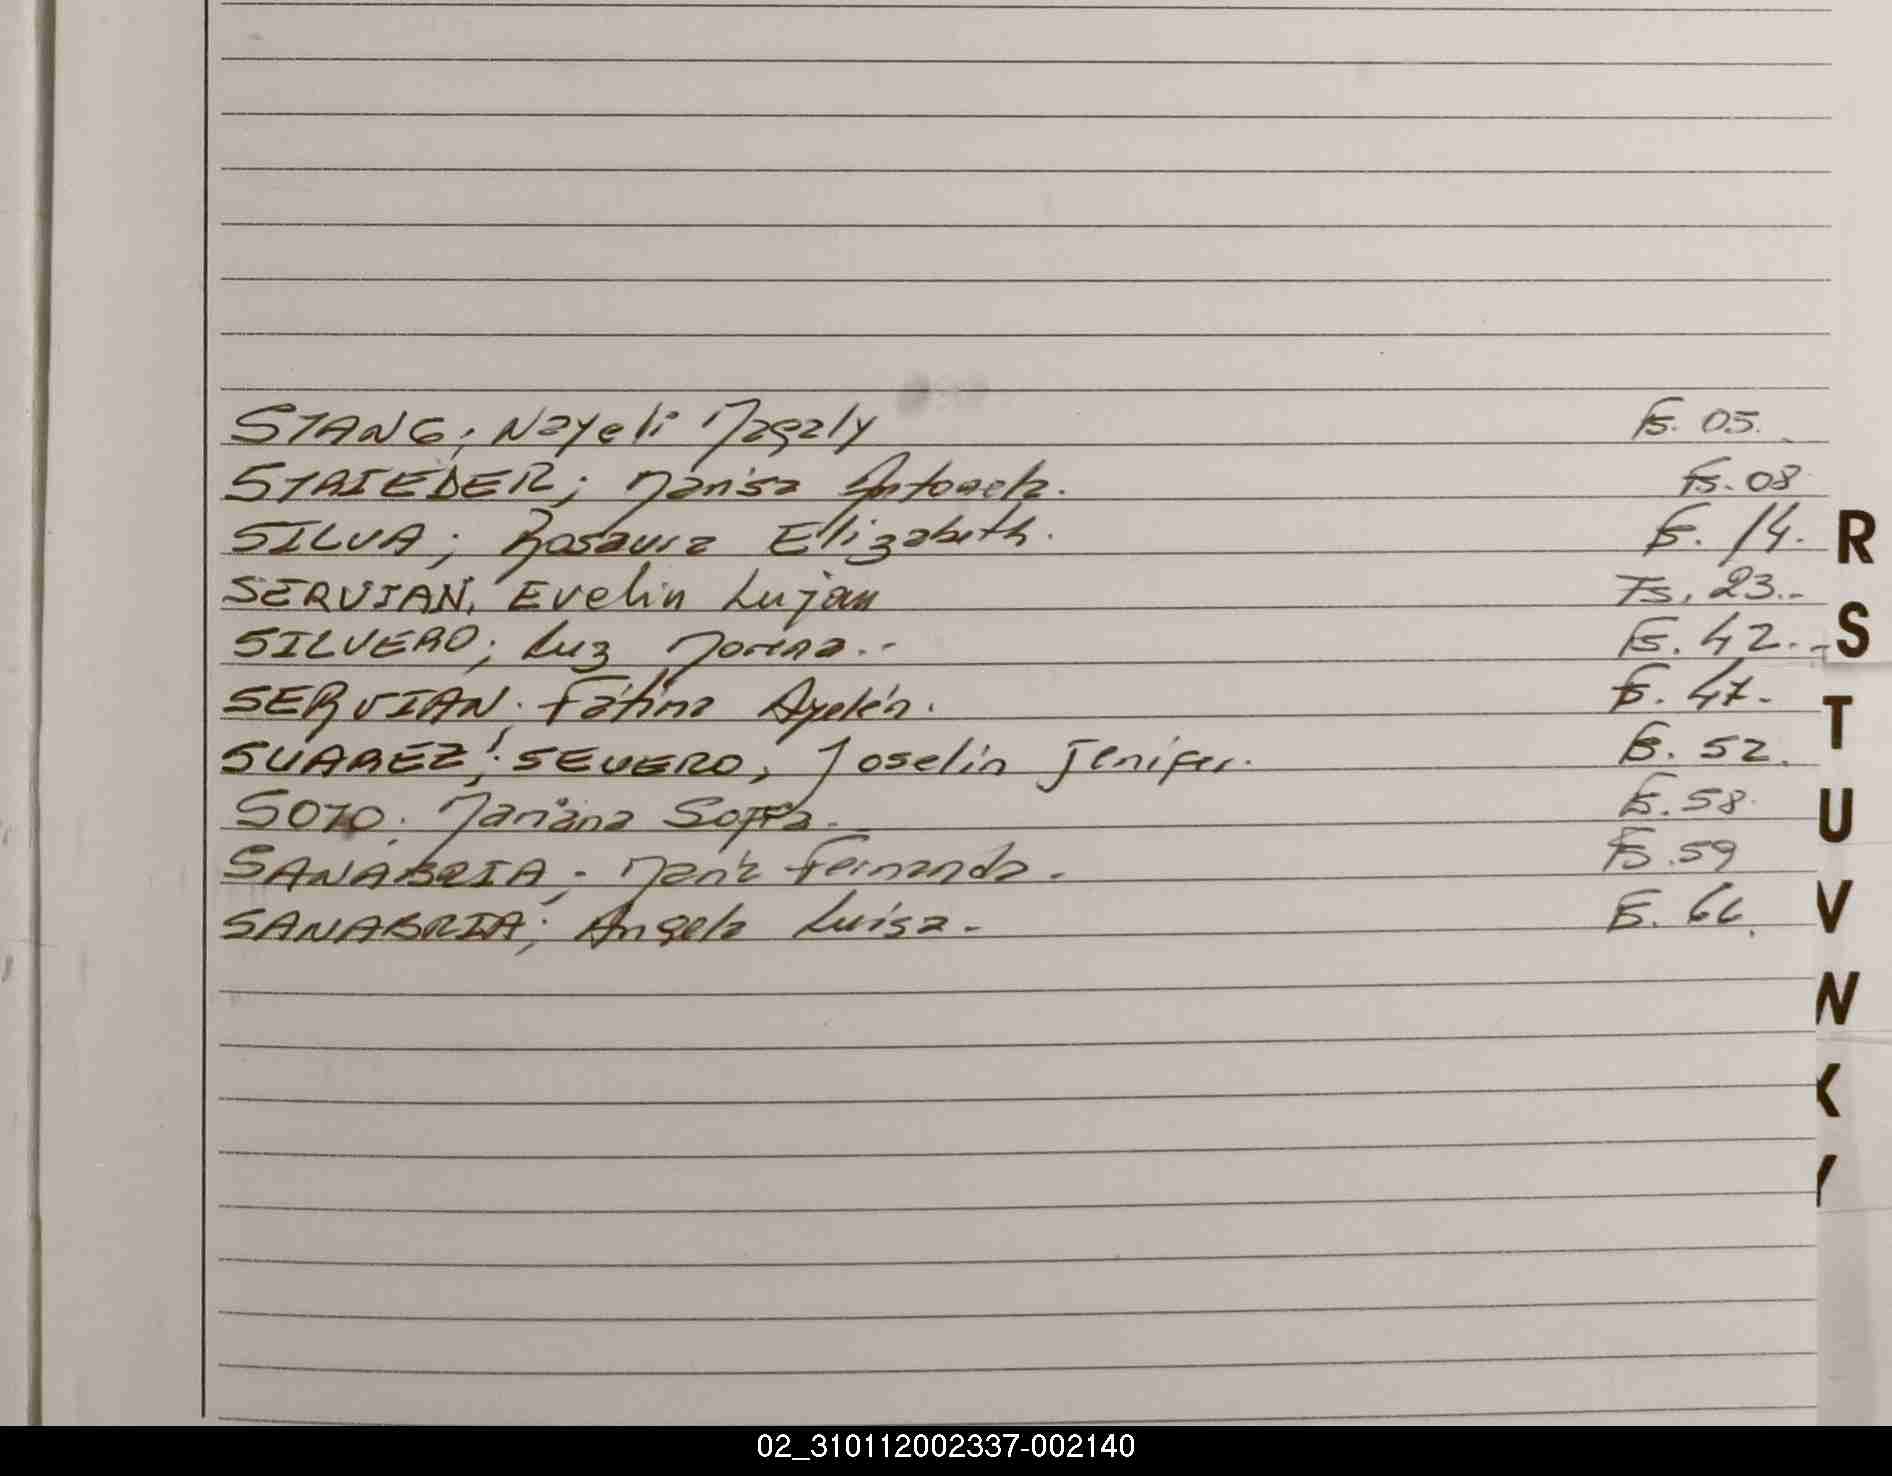 STANG; Nayeli Magaly Fs. 05.
STRIEDER; Marisa Antonela. Fs. 08
SILVA; Rosaura Elizabeth. Fs. 14.
SERVIAN, Evelin Lujan Fs. 23.-
SILVERO; Luz Morena.- Fs. 42.-
SERVIAN. Fátima Ayelén. Fs. 47.
SUAREZ; SEVERO, Joselin Jenifer. Fs. 52.
SOTO. Mariana Sofía. Fs. 58.
SANABRIA; María Fernanda. Fs. 59
SANABRIA; Angela Luisa.
R
S
T
U
V
W
X
Y
02_310112002337-002140